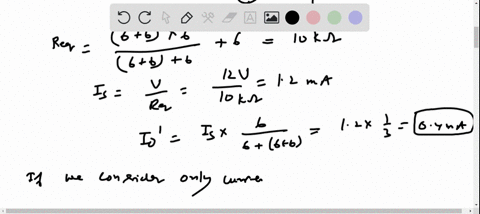 Req = (6+6) × 6 / (6+6) + 6 + 6 = 10 kΩ
Is = V / Req = 12V / 10kΩ = 1.2 mA
Io' = Is × 6 / 6 + (6+6) = 1.2 × 1/3 = 0.4 mA
If we consider only curre